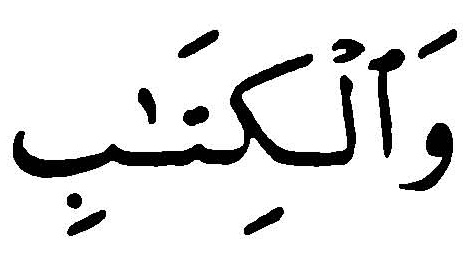 وَٱلْكِتَٰبِ